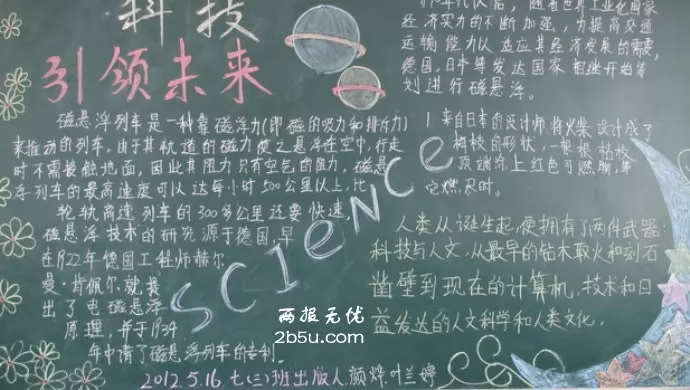 科技
引领未来
磁悬浮列车是一种靠磁浮力(即磁的吸力和排斥力)
来推动的列车。由于其轨道的磁力使之悬浮在空中,行走
时不需接触地面,因此其阻力只有空气的阻力。磁悬
浮列车的最高速度可以达每小时500公里以上,比
轮轨高速列车的300多公里还要快速,
磁悬浮技术的研究源于德国,早
在1922年德国工程师赫尔
曼·肯佩尔就提
出了电磁悬浮
原理,并于1934
年申请了磁悬浮列车的专利。
SCIENCE
年代以后,随着世界工业化国家
经济实力的不断加强,为提高交通
运输能力以适应其经济发展的需要,
德国,日本等发达国家相继开始筹
划进行磁悬浮。
1 来自日本的设计师,将火柴设计成了
梅枝的形状,一根根枯枝
顶端涂上红色可燃物,
它燃尽时。
人类从诞生起,便拥有了两件武器:
科技与人文,从最早的钻木取火和刻石
凿壁到现在的计算机,技术和日
益发达的人文科学和人类文化。
2012.5.16.七(三)班出版人.颜烨.叶兰婷
两报无优
2b5u.com